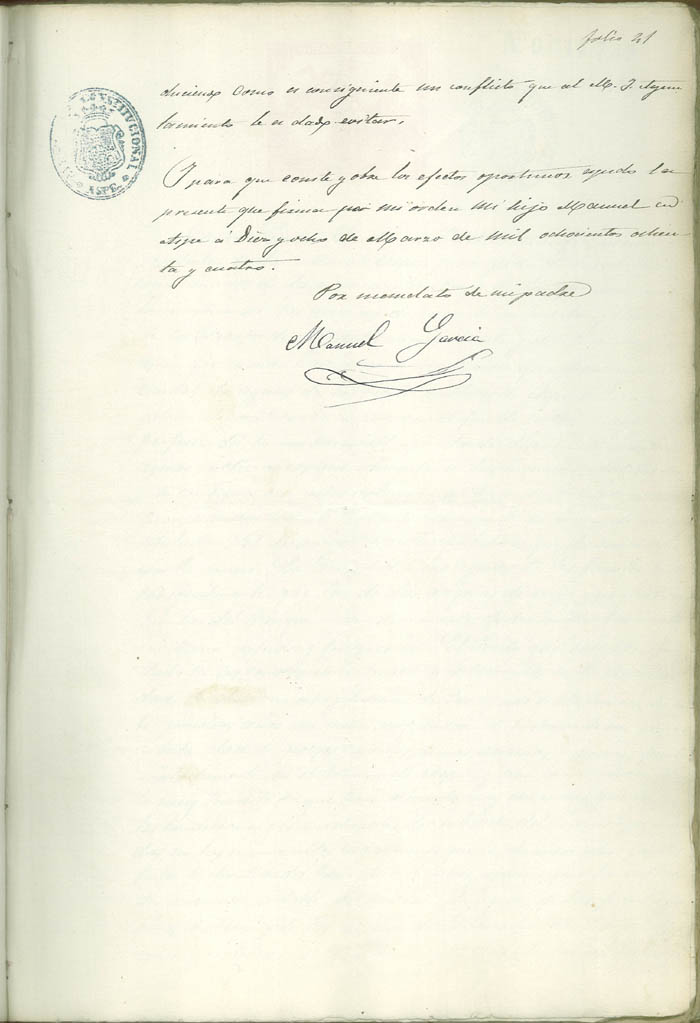 folio 21
duciendo como es consiguiente un conflicto que al M. I. Ayun
tamiento le es dado evitar.
Y para que conste y obre los efectos oportunos espido la
presente que firma por mi orden mi hijo Manuel en
Aspe á Diez y ocho de Marzo de mil ochocientos ochen
ta y cuatro.
Por mandato de mi padre
Manuel Garcia
CONSTITUCIONAL
ASPE